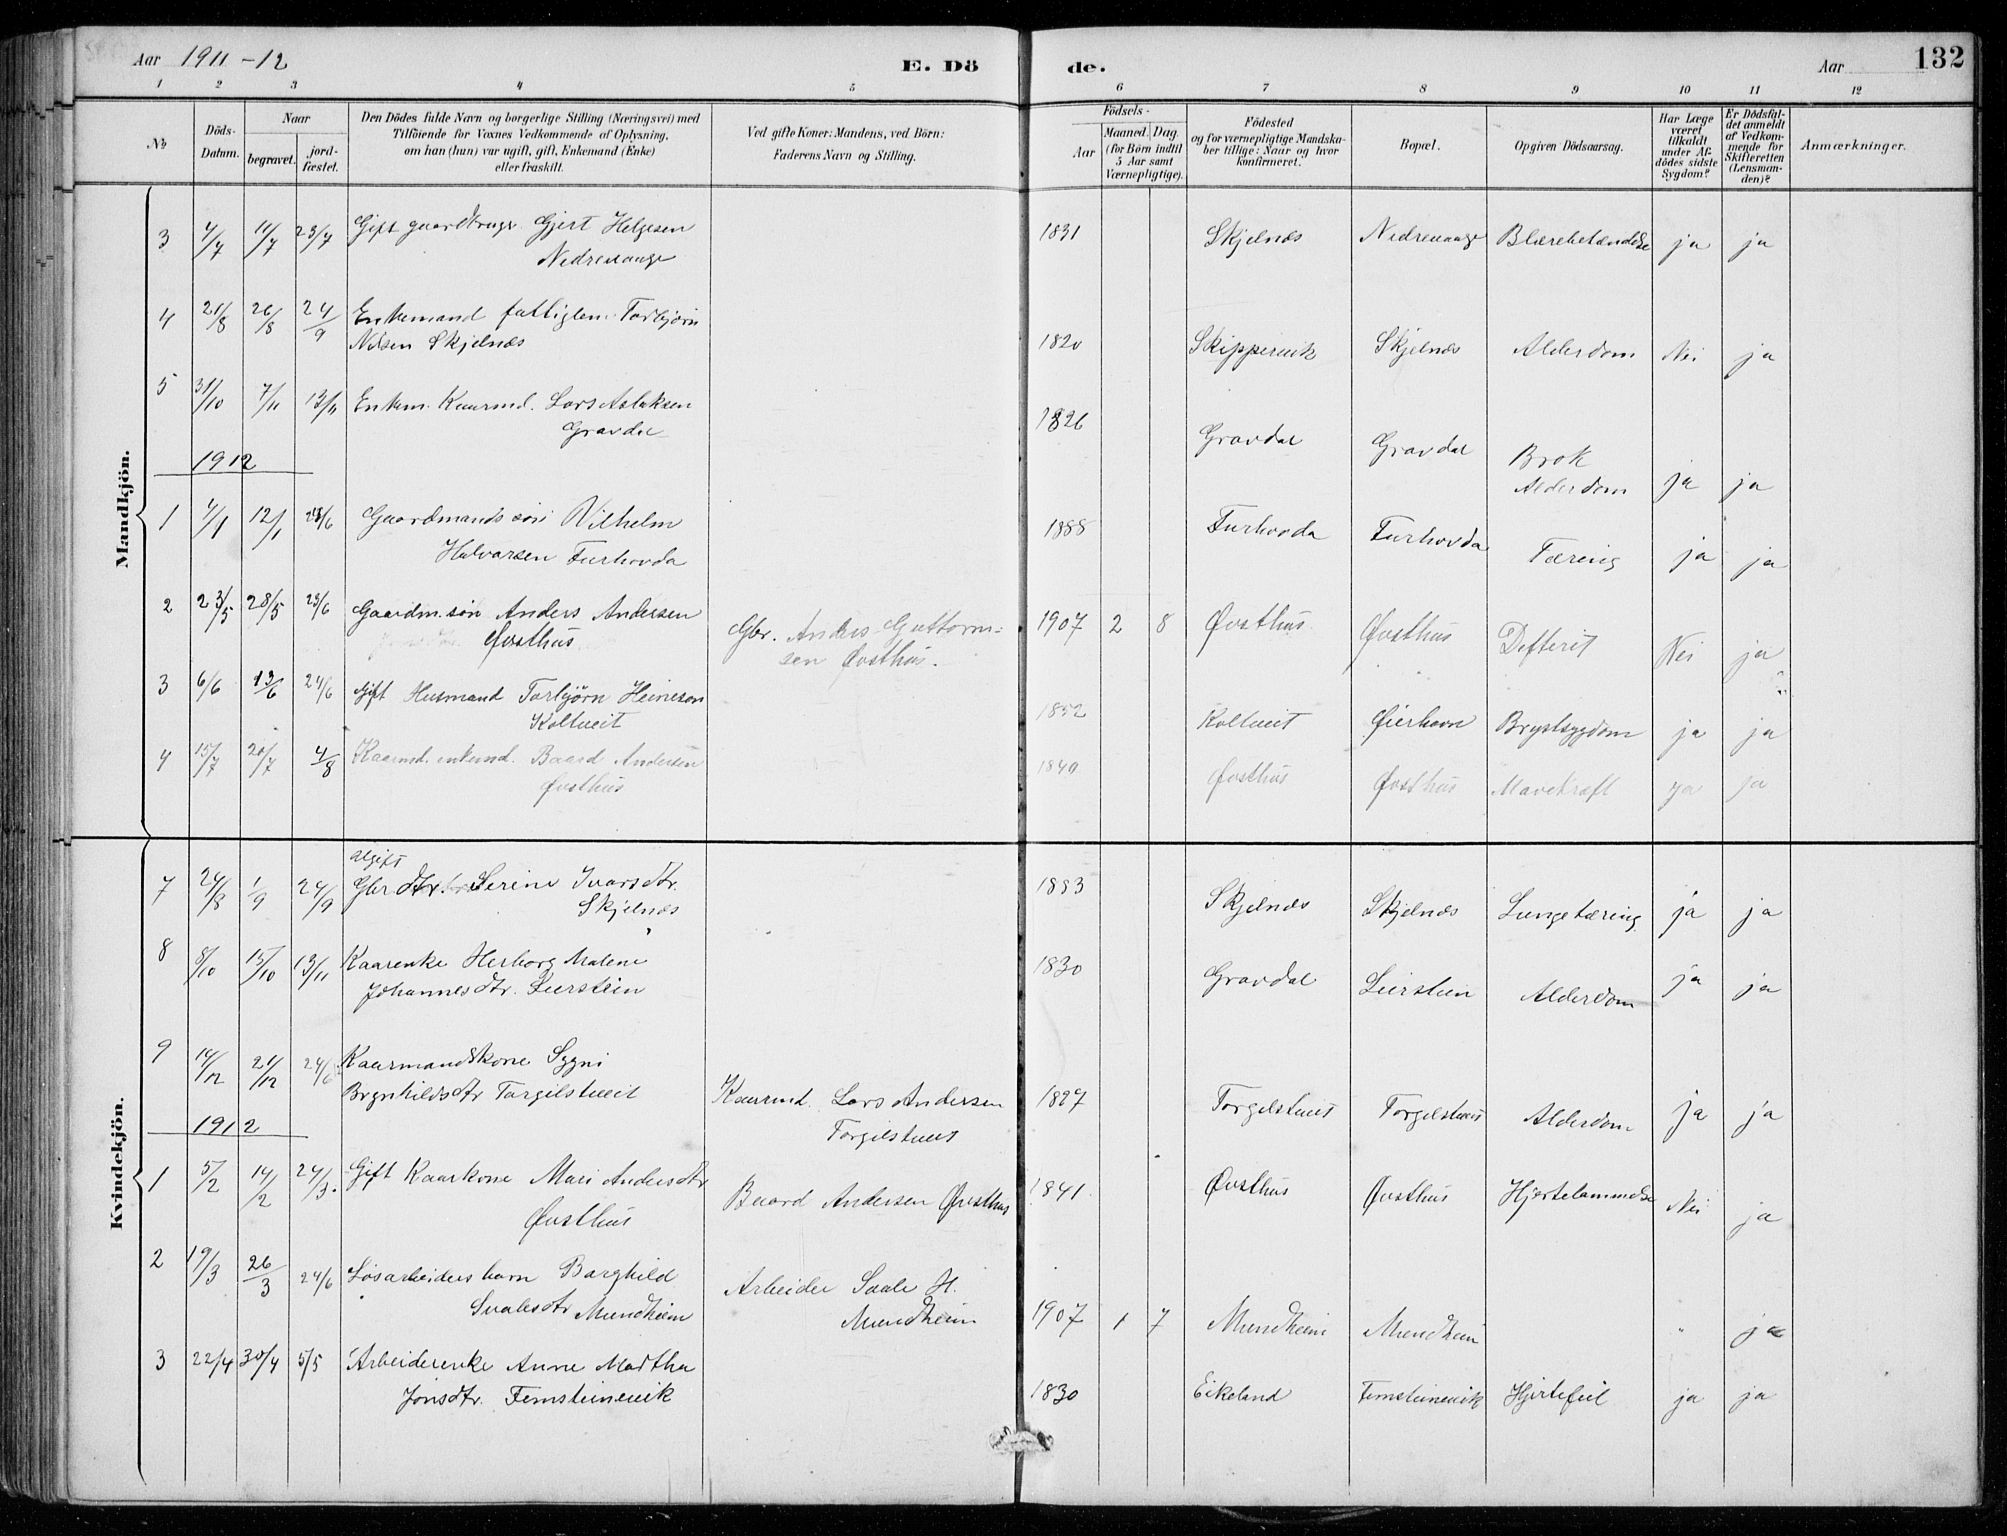 Aar 1911-12 E. Dö de. Aar 132
1 2 3 4 5 6 7 8 9 10 11 12
No Döds-Datum. Naar begravet. jord-fæstet. Den Dödes fulde Navn og borgerlige Stilling (Næringsvei) med Tilföiende for Voxnes Vedkommende af Oplysning, om han (hun) var ugift, gift, Enkemand (Enke) eller fraskilt. Ved gifte Koner: Mandens, ved Börn: Faderens Navn og Stilling. Födsels- Aar Maaned. Dag. (for Börn indtil 5 Aar samt Værnepligtige). Födested og for værnepligtige Mandskaber tillige: Naar og hvor konfirmeret. Bopæl. Opgiven Dödsaarsag. Har Læge været tilkaldt under Afdödes sidste Sygdom? Er Dödsfaldet anmeldt af Vedkommende for Skifteretten (Lensmanden)? Anmærkninger.
Mandkjön.
3 4/7 11/7 23/7 Gift gaardbruger Gjert Helgesen 1831 Skjelnæs Nedrevaage Blærebetændelse ja ja
Nedrevaage
4 21/8 26/8 24/9 Enkemand fattiglem Torbjørn
Nilsen Skjelnæs 1820 Skippervik Skjelnæs Alderdom Nei ja
5 31/10 7/11 13/11 Enkem. Kaarmd. Lars Aslaksen 1826 Gravdal Gravdal Brok
Gravdal Alderdom ja ja
1912
1 4/1 12/1 24/6 Gaardmands søn Vilhelm 1888 Furhovda Furhovda Tæring ja ja
Halvorsen Furhovda
2 23/5 28/5 23/6 Gaardm. søn Anders Andersen Gbr. Anders Guttorm- 1907 2 8 Øvsthus Øvsthus Defterit Nei ja
Øvsthus sen Øvsthus.
3 6/6 13/6 24/6 Gift Husmand Torbjørn Heineson 1852 Koltveit Øierhavn Brystsygdom ja ja
Koltveit
4 15/7 20/7 4/8 Kaarmd. enkemd. Baard Andersen 1849 Øvsthus Øvsthus Mavekræft ja ja
Øvsthus
Kvindekjön.
ugift
7 24/8 1/9 24/9 Gbr dtr. Serine Ivarsdtr. 1883 Skjelnæs Skjelnæs Lungetæring ja ja
Skjelnæs
8 8/10 15/10 13/11 Kaarenke Herborg Malene 1830 Gravdal Leirstein Alderdom ja ja
Johannesdtr. Leirstein
9 14/12 21/12 24/6 Kaarmandskone Sygni
Brynhildsdtr Torgilstveit Kaarmd. Lars Andersen 1827 Torgilstveit Torgilstveit Alderdom ja ja
1912 Torgilstveit
1 5/2 14/2 24/3. Gift Kaarkone Mari Andersdtr Baard Andersen Øvsthus 1841. Øvsthus Øvsthus Hjertelammelse Nei ja
Øvsthus
2 19/3 26/3 24/6 Løsarbeiders barn Borghild Arbeider Saale H.
Svalesdtr Mundheim Mundheim 1907 1 7 Mundheim Mundheim " ja
3 22/4 30/4 5/5 Arbeiderenke Anne Martha 1830 Eikeland Femsteinevik Hjertefeil ja ja
Jonsdtr. Femsteinevik